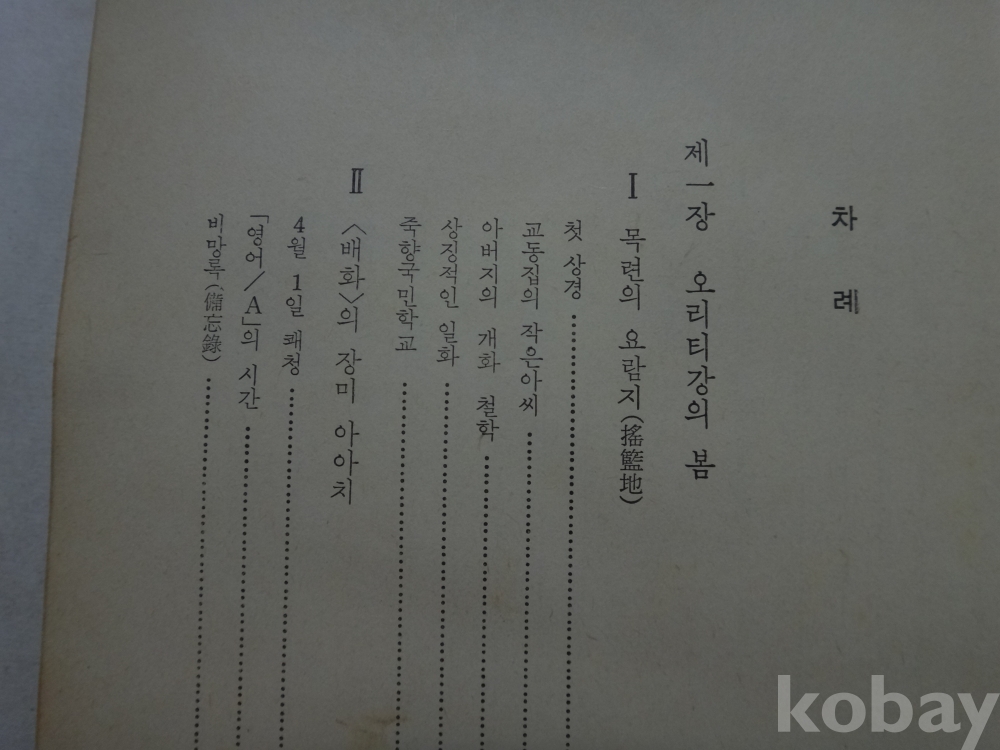 차례
제一장 오리티강의 봄
Ⅰ 목련의 요람지(搖籃地)
첫 상경
교동집의 작은아씨
아버지의 개화 철학
상징적인 일화
죽향국민학교
Ⅱ 〈배화〉의 장미 아아치
4월 1일 쾌청
「영어/A」의 시간
비망록(備忘錄)
kobay